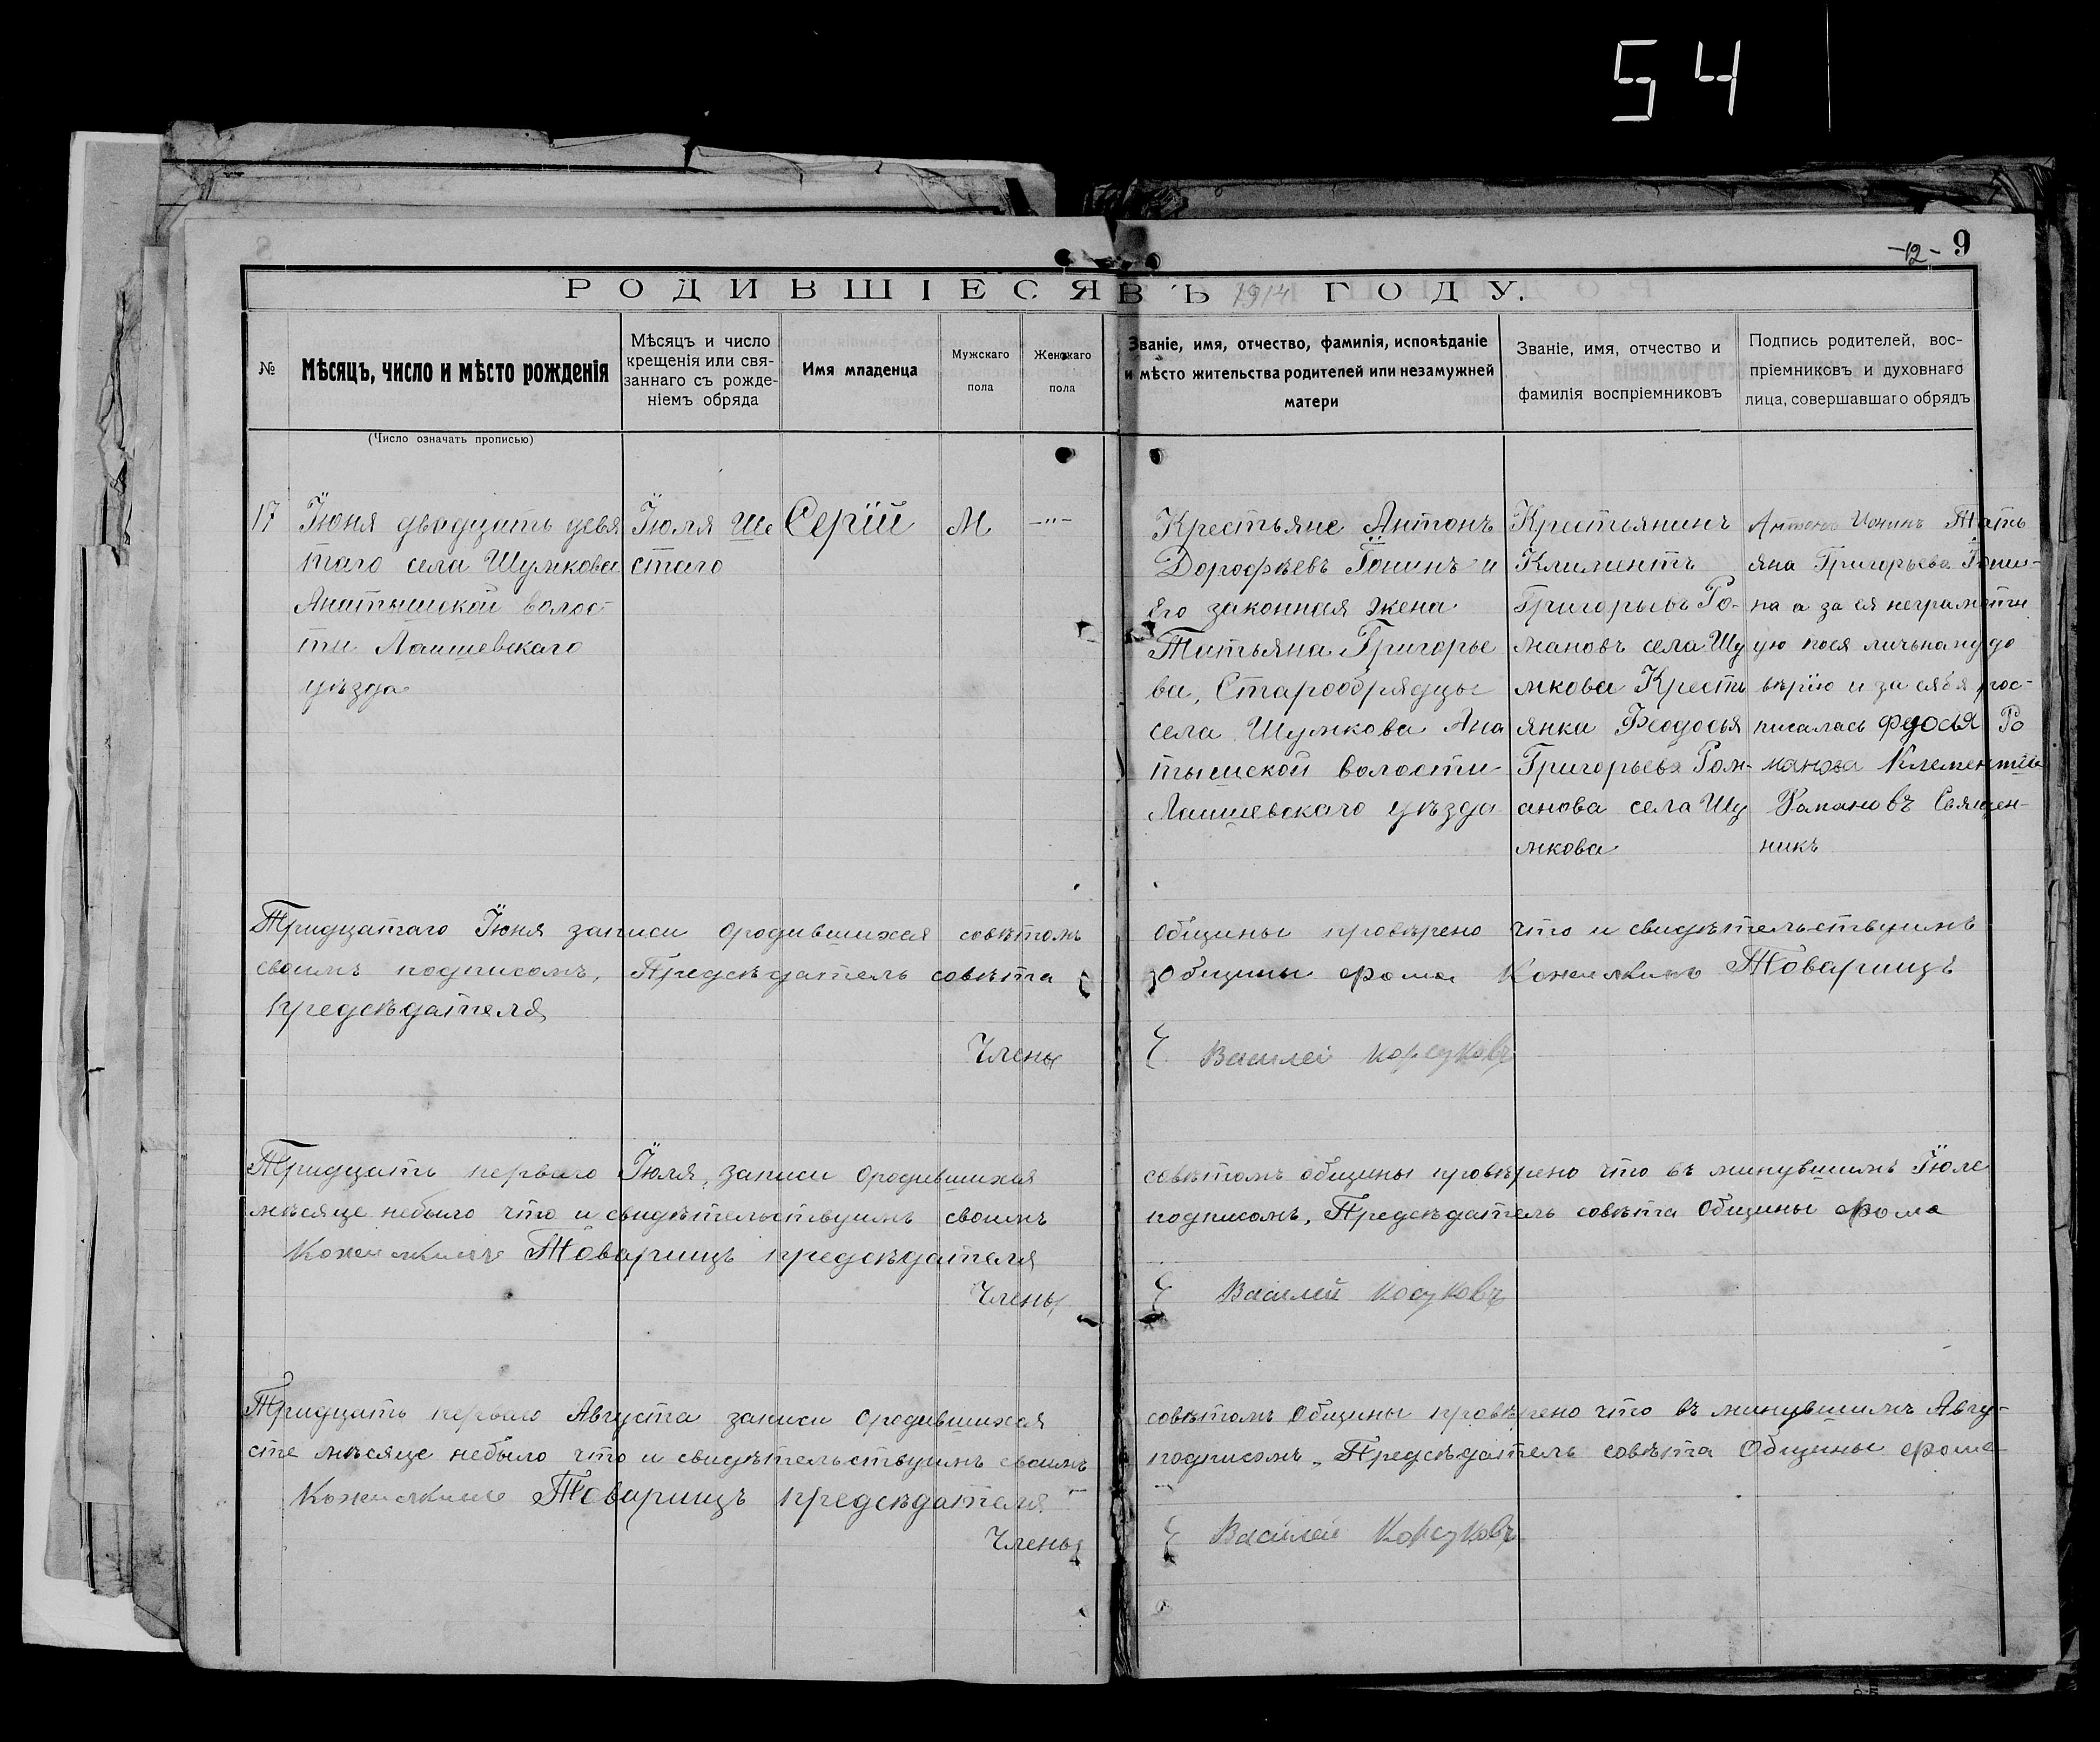 54
-12- 9
РОДИВШІЕСЯ ВЪ 1914 ГОДУ.
№
Мѣсяцъ, число и мѣсто рожденія
(Число означать прописью)
Мѣсяцъ и число
крещенія или свя-
заннаго съ рожде-
ніемъ обряда
Имя младенца
Мужскаго
пола
Женскаго
пола
Званіе, имя, отчество, фамилія, исповѣданіе
и мѣсто жительства родителей или незамужней
матери
Званіе, имя, отчество и
фамилія воспріемниковъ
Подпись родителей, вос-
пріемниковъ и духовнаго
лица, совершавшаго обрядъ
17
Іюня двадцать девя
таго села Шумкова
Анатышской волос
ти Лаишевскаго
уѣзда
Іюля Ше
стаго
Сергій
М
-"-
Крестьяне Антонъ
Дорофѣевъ Іонинъ и
его законная жена
Татьяна Григорье
ва, Старообрядцы
села Шумкова Ана
тышской волости
Лаишевскаго уѣзда
Крестьянинъ
Климентъ
Григорьевъ Ро-
мановъ села Шу
мкова Крестья
янка Феодосья
Григорьева Ром-
анова села Шу
мкова
Антонъ Ионинъ Тать
яна Григорьева Іони-
на а за ея неграмотн
ую поея личьнану до
вѣрію и за себя рос-
писалась Федосья Ро
манова Клементи
Рамановъ Священ-
никъ
Тридцатаго Іюня записи ородившихся совѣтомъ общины провѣрено что и свидѣтельствуимъ
своимъ подписомъ, Предсѣдатель совѣта общины Фома Кожемкинъ Товарищъ
предсѣдателя
Члены Василей Корсуковъ
Тридцать перваго Іюля, записи ородившихся совѣтомъ общины провѣрено что въ минувшимъ Іюле
мѣсяце небыло что и свидѣтельствуимъ своимъ подписомъ, Предсѣдатель совѣта Общины Фома
Товарищъ предсѣдателя
Члены Василей Косуковъ
Тридцать перваго Августа записи ородившихся совѣтомъ Общины провѣрено что въ минувшимъ Авгу-
сте мѣсяце небыло что и свидѣтельствуимъ своимъ подписомъ, Предсѣдатель совѣта Общины Фома
Товарищъ предсѣдателя
Члены Василей Корсуковъ